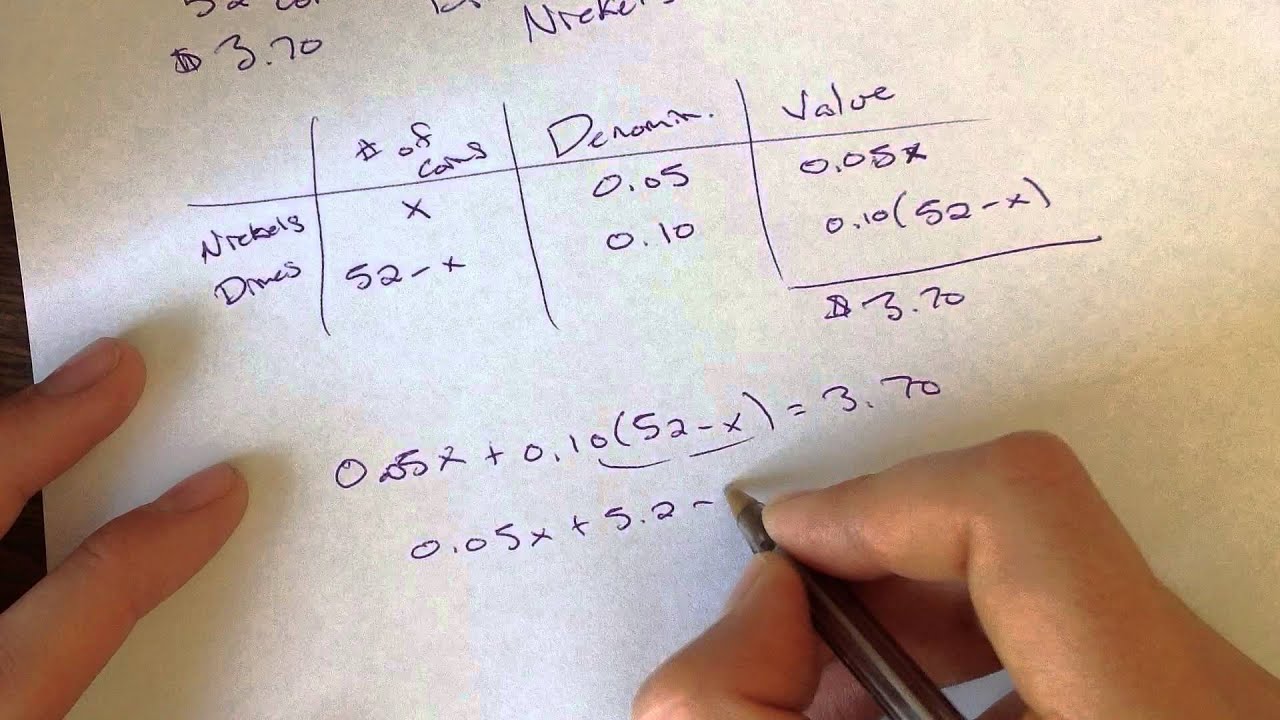 52
$ 3.70
Nickels
# of coins
Denomin.
Value
Nickels x 0.05 0.05x
Dimes 52-x 0.10 0.10(52-x)
$ 3.70
0.05x + 0.10(52-x) = 3.70
0.05x + 5.2 -